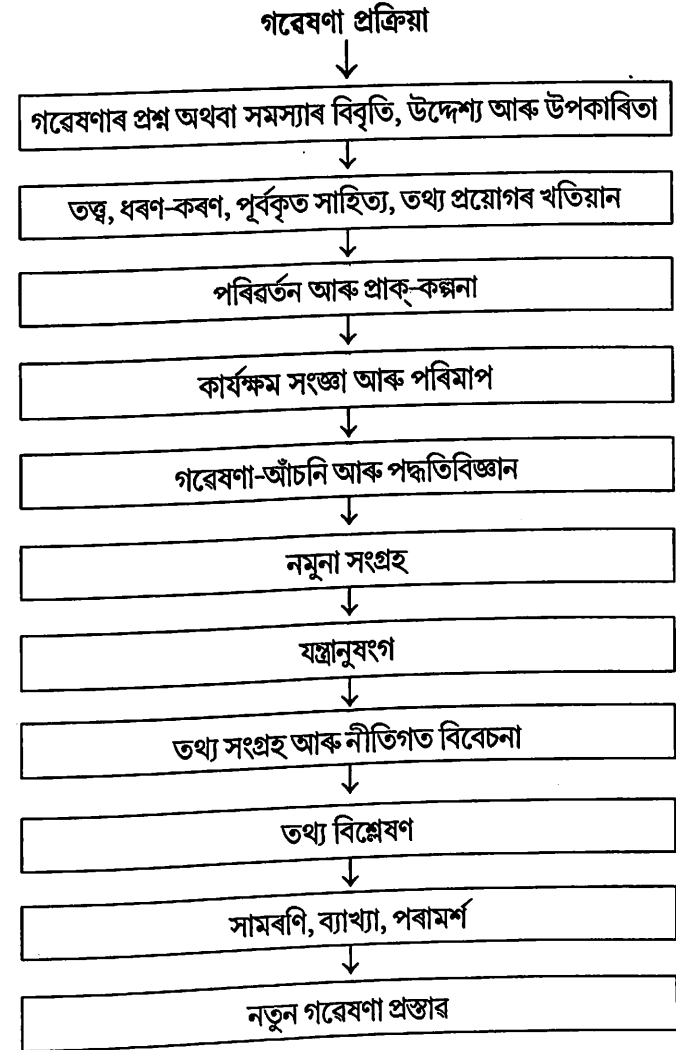 গৱেষণা প্ৰক্ৰিয়া
গৱেষণাৰ প্ৰশ্ন অথবা সমস্যাৰ বিবৃতি, উদ্দেশ্য আৰু উপকাৰিতা
তত্ত্ব, ধৰণ-কৰণ, পূৰ্বকৃত সাহিত্য, তথ্য প্ৰয়োগৰ খতিয়ান
পৰিৱৰ্তন আৰু প্ৰাক্-কল্পনা
কাৰ্যক্ষম সংজ্ঞা আৰু পৰিমাপ
গৱেষণা-আঁচনি আৰু পদ্ধতিবিজ্ঞান
নমুনা সংগ্ৰহ
যন্ত্ৰানুষংগ
তথ্য সংগ্ৰহ আৰু নীতিগত বিবেচনা
তথ্য বিশ্লেষণ
সামৰণি, ব্যাখ্যা, পৰামৰ্শ
নতুন গৱেষণা প্ৰস্তাৱ